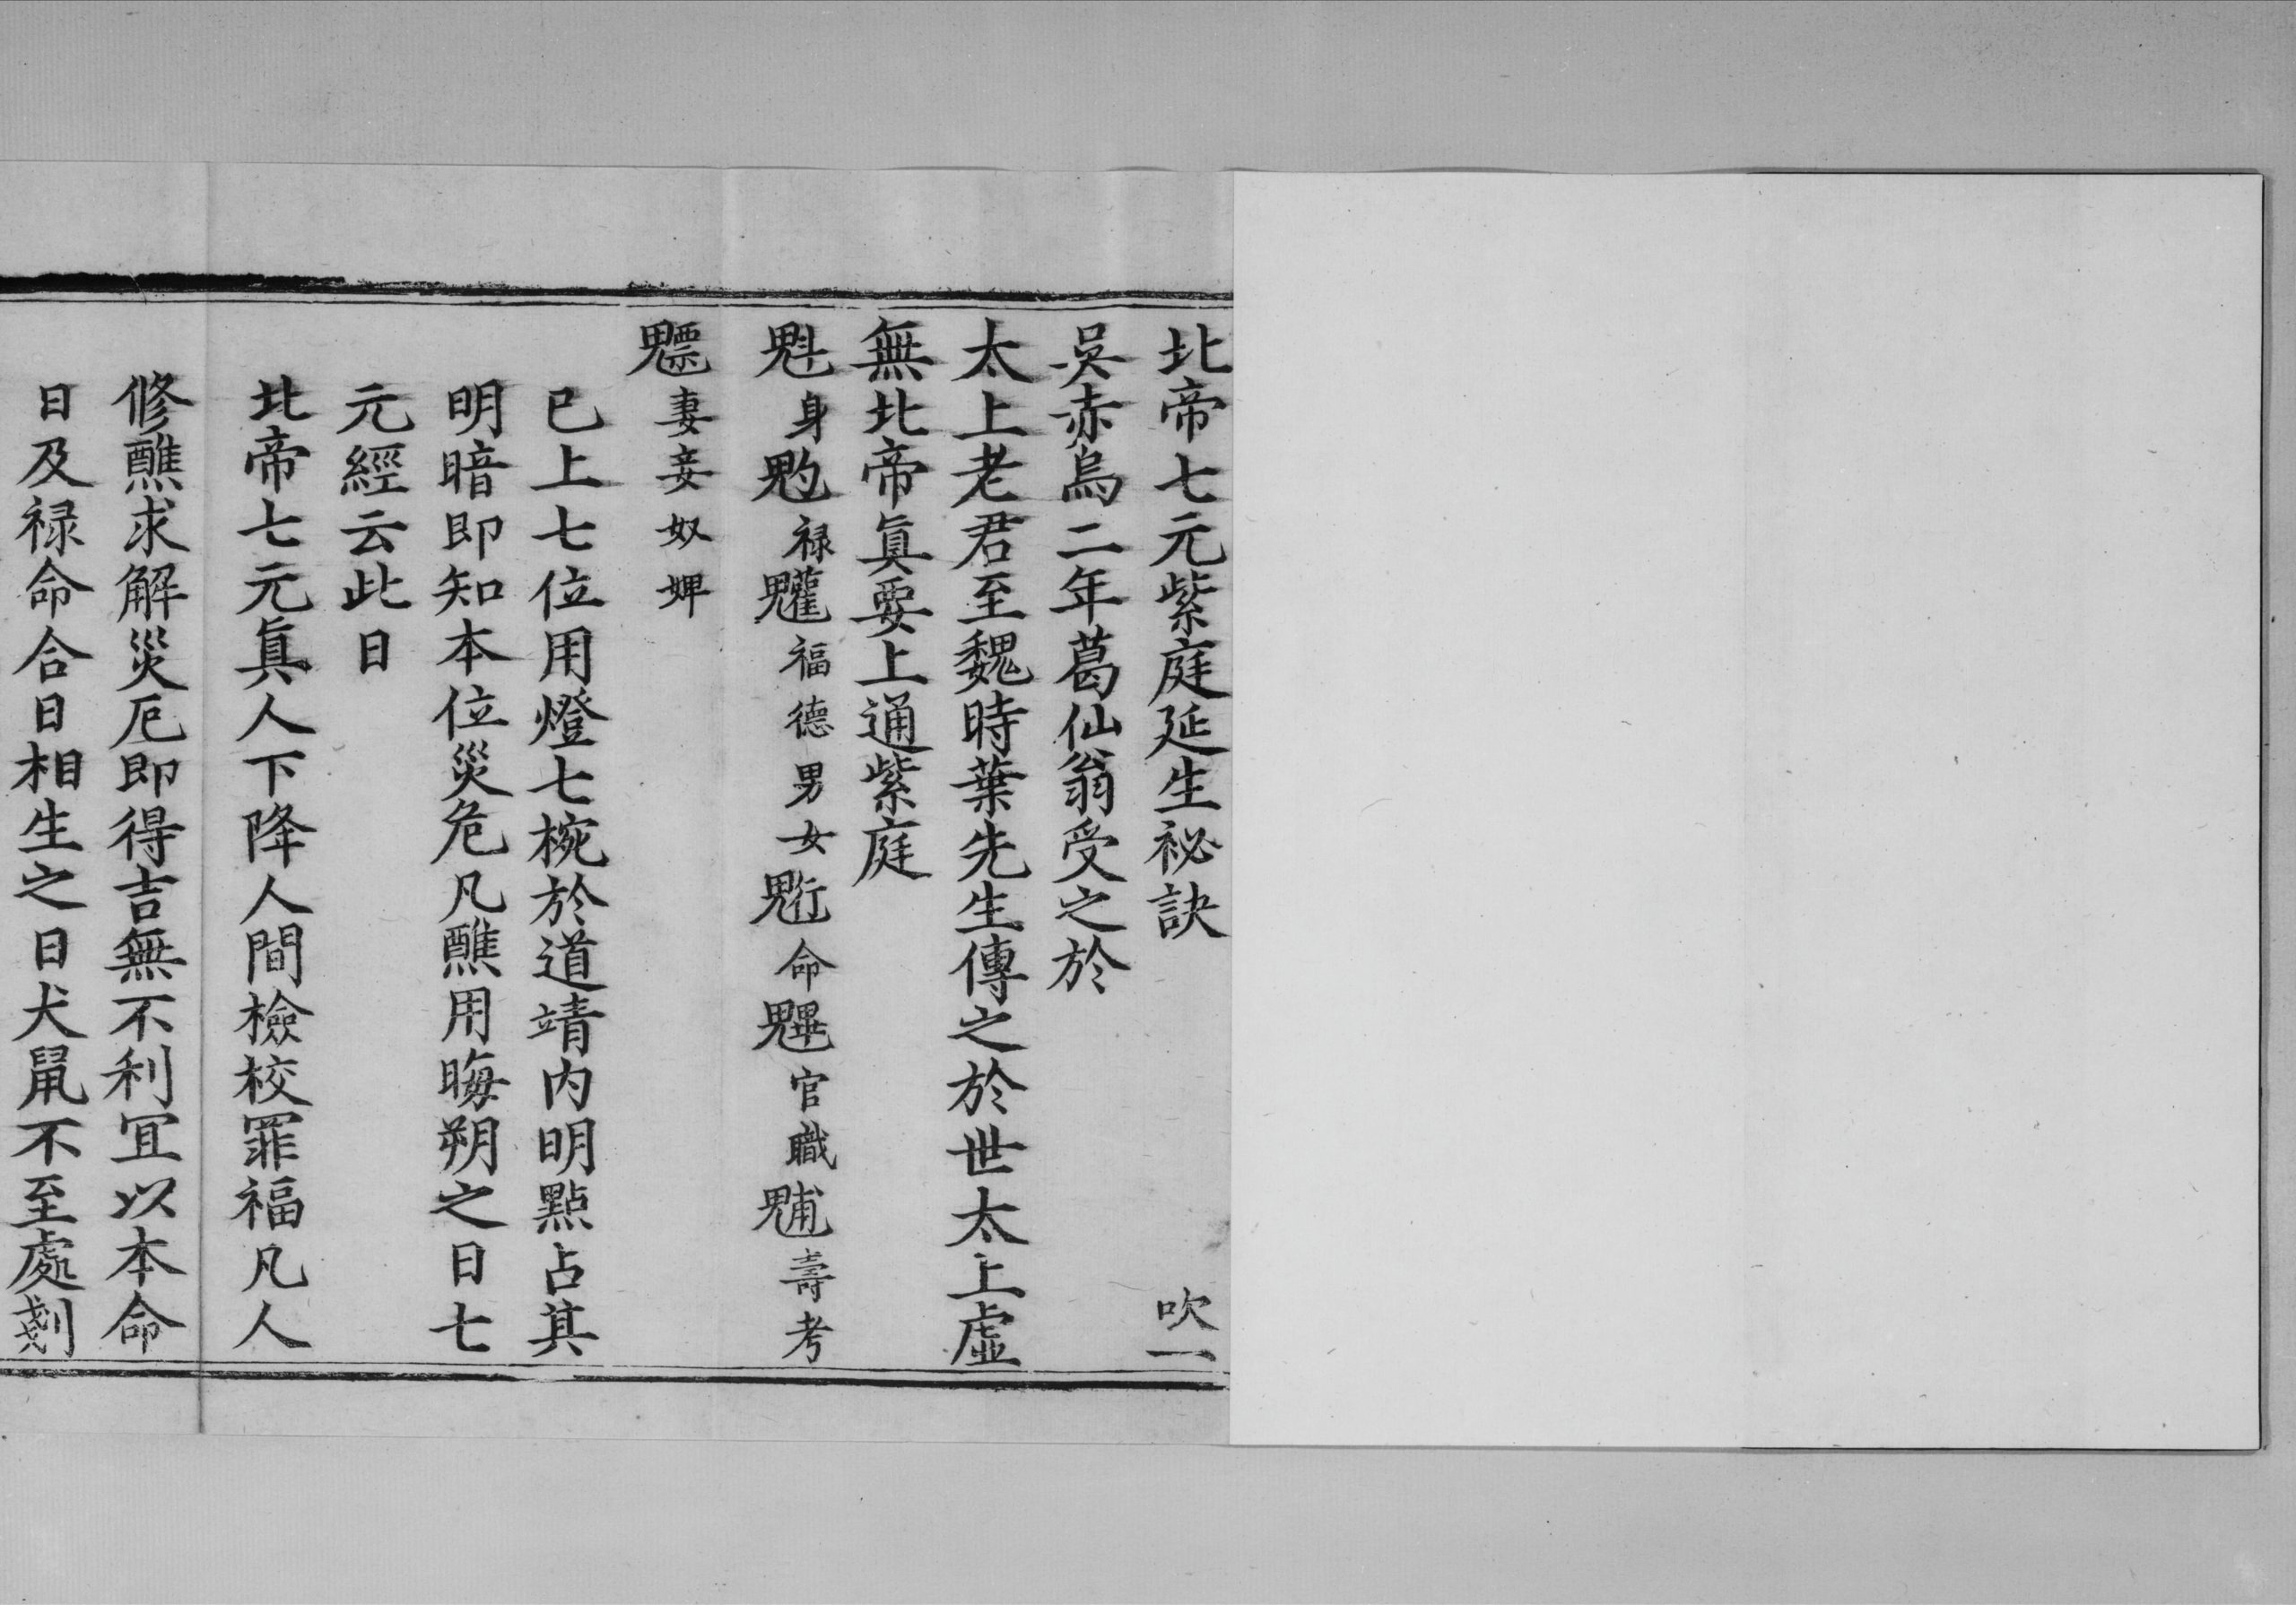 北帝七元紫庭延生祕訣 吹一
吳赤烏二年葛仙翁受之於
太上老君至魏時葉先生傳之於世太上虛
無北帝眞要上通紫庭
魁身 禄 福德男女 命魓官職 壽考
魒妻妾奴婢
已上七位用燈七椀於道靖内明點占其
明暗即知本位災危凡醮用晦朔之日七
元經云此日
北帝七元眞人下降人間檢校罪福凡人
修醮求解災厄即得吉無不利宜以本命
日及禄命合日相生之日犬鼠不至處剗